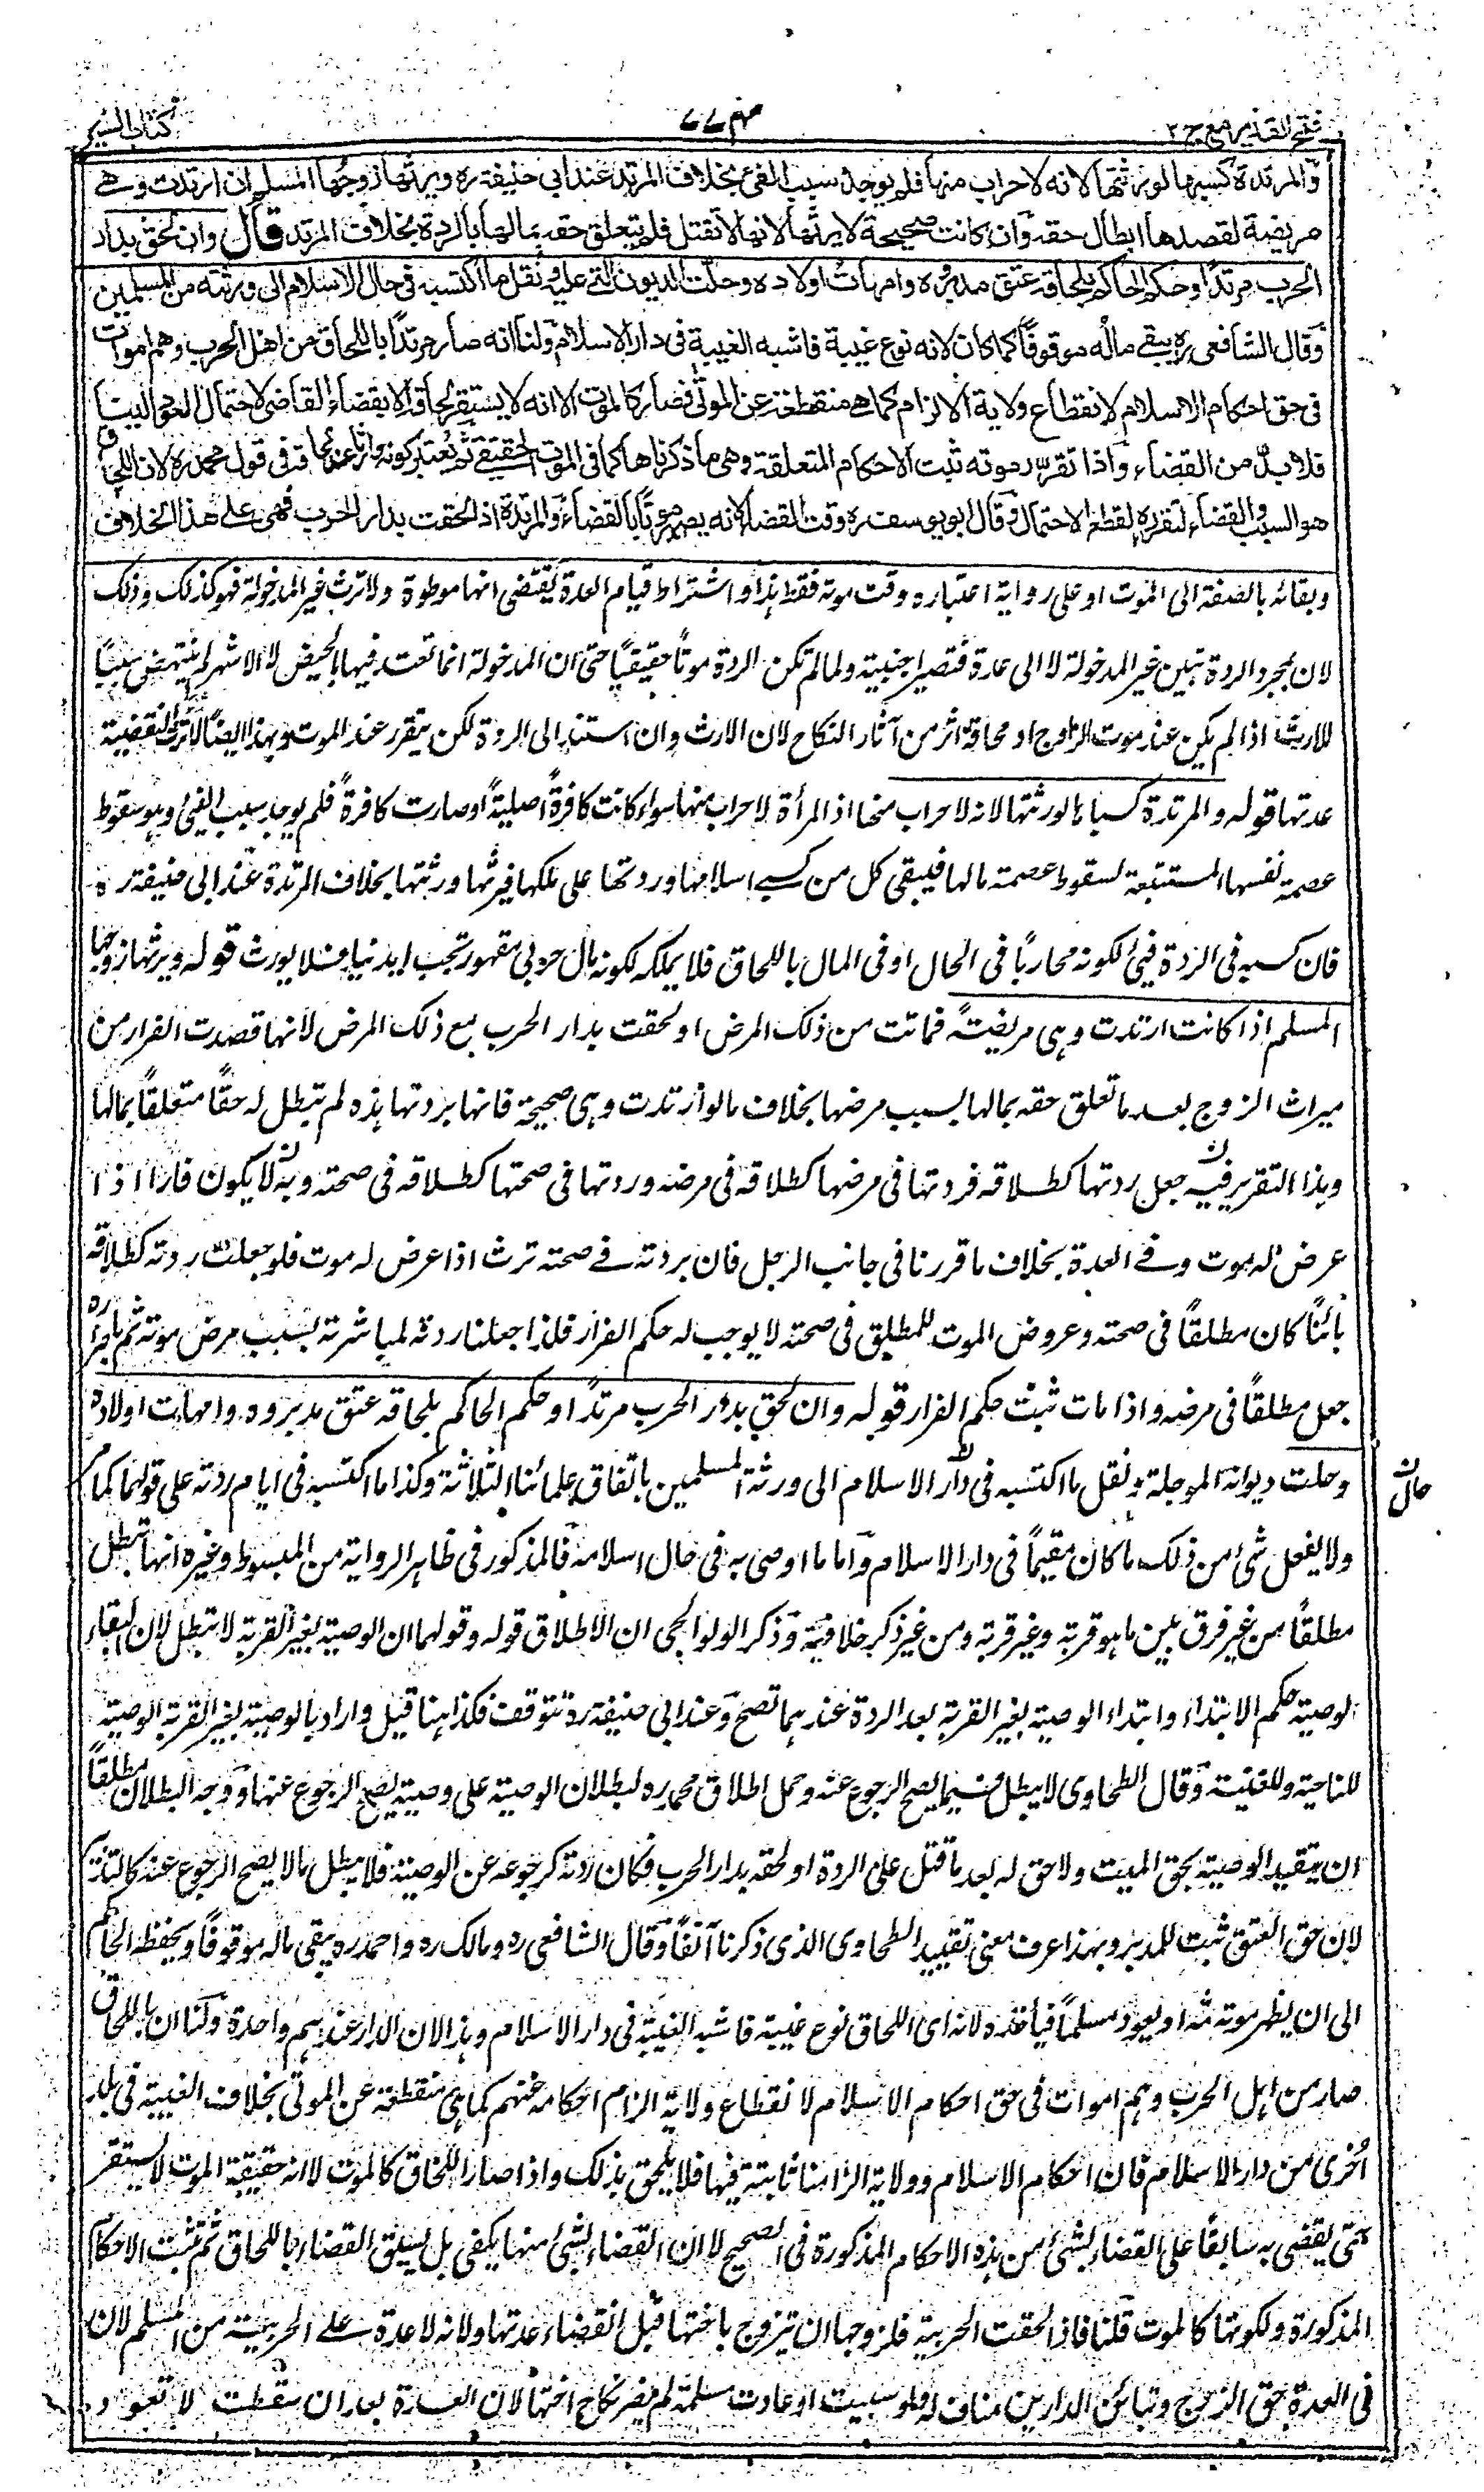 فتح القدير مع ج ٢
كتاب السير
والمرتدة كسبها لورثتها لانه لا حراب منها فلم يوجد سبب الفئ بخلاف المرتد عند ابي حنيفة ره ويرثها زوجها المسلم ان ارتدت وهے
مريضة لقصدها ابطال حقه وان كانت صحيحة لا يرثها لانها لا تقتل فلم يتعلق حقه بمالها بالردة بخلاف المرتد قال وان لحق بدار
الحرب مرتدا وحكم الحاكم بلحاقه عتق مدبروه وامهات اولاده وحلت الديون التے عليه ونقل ما اكتسبه فى حال الاسلام الى ورثته من المسلمين
وقال الشافعى ره يبقے ماله موقوفا كما كان لانه نوع غيبة فاشبه الغيبة فى دار الاسلام ولنا انه صار مرتدا باللحاق من اهل الحرب وهم اموات
فى حق احكام الاسلام لانقطاع ولاية الالزام كما هے منقطعة عن الموتى فصار كالموت الا انه لا يستقر لحاقه الا بقضاء القاضى لاحتمال العود الينا
فلابد من القضاء واذا تقرر موته تثبت الاحكام المتعلقة وهى ما ذكرناها كما فى الموت الحقيقے ثم يعتبر كونه وارثا عند لحاقه فى قول محمد ره لان اللحاق
هو السبب والقضاء لتقرره لقطع الاحتمال وقال ابو يوسف ره وقت القضاء لانه يصير موتا بالقضاء والمرتدة اذا لحقت بدار الحرب فهى على هذا الخلاف
وبقائه بالصفة الى الموت او على رواية اعتباره وقت موته فقط هذا واشتراط قيام العدة يقتضى انها موطوة ولا ترث غير المدخولة فهو كذلك وذلك
لان بمجرد الردة تبين غير المدخولة لا الى عدة فتصير اجنبية ولما لم تكن الردة موتا حقيقيا حتى ان المدخولة انما تعتد فيها بالحيض لا الاشهر لم ينتهض سببا
للارث اذا لم يكن عند موت الزوج او لحاقه اثر من آثار النكاح لان الارث وان استند الى الردة لكن يتقرر عند الموت وبهذا ايضا لا ترث المنقضية
عدتها قوله والمرتدة كسبها لورثتها لانه لا حراب منها اذ المرأة لا حراب منها سواء كانت كافرة اصلية او صارت كافرة فلم يوجد سبب الفئ وهو سقوط
عصمة نفسها المستتبعة لسقوط عصمة مالها فيبقى كل من كسبے اسلامها وردتها على ملكها فيرثها ورثتها بخلاف المرتدة عند ابى حنيفة ره
فان كسبه فى الردة فئ لكونه محاربا فى الحال او فى المال باللحاق فلا يملكه لكونه مال حربى مقهور تحت ايدنيا فلا يورث قوله ويرثها زوجها
المسلم اذا كانت ارتدت وهى مريضة فماتت من ذلك المرض او لحقت بدار الحرب مع ذلك المرض لانها قصدت الفرار من
ميراث الزوج بعد ما تعلق حقه بمالها بسبب مرضها بخلاف ما لو ارتدت وهى صحيحة فانها بردتها هذه لم تبطل له حقا متعلقا بمالها
وبهذا التقرير فيه جعل ردتها كطلاقه فردتها فى مرضها كطلاقه فى مرضه وردتها فى صحتها كطلاقه فى صحته وبه لا يكون فارا اذا
عرض له موت وفے العدة بخلاف ما قررنا فى جانب الرجل فان بردته فے صحته ترث اذا عرض له موت فلو جعلت ردته كطلاقه
بائنا كان مطلقا فى صحته وعروض الموت للمطلق فى صحته لا يوجب له حكم الفرار فلذا جعلنا ردته لمباشرته لسبب مرض موته ثم باصراره
جعل مطلقا فى مرضه واذا مات ثبت حكم الفرار قوله وان لحق بدار الحرب مرتدا وحكم الحاكم بلحاقه عتق مدبروه وامهات اولاده
وحلت ديونه الموجلة ونقل ما اكتسبه فى دار الاسلام الى ورثة المسلمين باتفاق علمائنا الثلاثة وكذا ما اكتسبه فى ايام ردته على قولهما كما مر
حال
ولا يفعل شئ من ذلك ما كان مقيما فى دار الاسلام واما ما اوصى به فى حال اسلامه فالمذكور فى ظاهر الرواية من المبسوط وغيره انها تبطل
مطلقا من غير فرق بين ما هو قربة وغير قربة ومن غير ذكر خلافية وذكر الولوالجى ان الاطلاق قوله وقولهما ان الوصية بغير القربة لا تبطل لان لبقاء
الوصية حكم الابتداء وابتداء الوصية بغير القربة بعد الردة عندهما تصح وعند ابى حنيفة ره تتوقف فكذا هنا قيل واراد بالوصية بغير القربة الوصية
للنائحة وللمغنية وقال الطحاوى لا يبطل فيما لا يصح الرجوع عنه وحمل اطلاق محمد ره لبطلان الوصية على وصية يصح الرجوع عنها ووجه البطلان مطلقا
ان تنفيذ الوصية بحق الميت ولا حق له بعد ما قتل على الردة او لحقه بدار الحرب فكان ردته كرجوعه عن الوصية فلا يبطل مالا يصح الرجوع عنه كالتدبير
لان حق العتق ثبت للمدبر وبهذا عرف معنى تقييد الطحاوى الذى ذكرنا آنفا وقال الشافعى ره ومالك ره واحمد ره يبقى ماله موقوفا ويحفظه الحاكم
الى ان يظهر موته ثمه او يعود مسلما فيأخذه لانه اى اللحاق نوع غيبة فاشبه الغيبة فى دار الاسلام وهذا لان الدار عندهم واحدة ولنا ان باللحاق
صار من اهل الحرب وهم اموات فى حق احكام الاسلام لانقطاع ولاية الزام احكامه عنهم كما هى منقطعة عن الموتى بخلاف الغيبة فى بلد
اخرى من دار الاسلام فان احكام الاسلام وولاية الزامنا ثابتة فيها فلا يلحق بذلك واذا صار اللحاق كالموت لا انه حقيقة الموت لا يستقر
حتى يقضى به سابقا على القضاء بشئ من هذه الاحكام المذكورة فى الصحيح لا ان القضاء بشئ منها يكفى بل يسبق القضاء باللحاق ثم تثبت الاحكام
المذكورة ولكونها كالموت قلنا فاذا لحقت الحربية فلزوجها ان يتزوج باختها قبل انقضاء عدتها ولانه لا عدة على الحربية من المسلم لان
فى العدة حق الزوج وتباين الدارين مناف له فلو سبيت او عادت مسلمة لم يضر نكاح اختها لان العدة بعد ان سقطت لا تعود